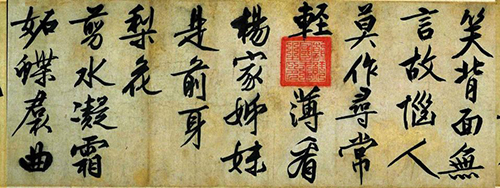 笑背面無
言故惱人
莫作尋常
輕薄看
楊家姊妹
是前身
梨花
剪水凝霜
妬蝶群曲